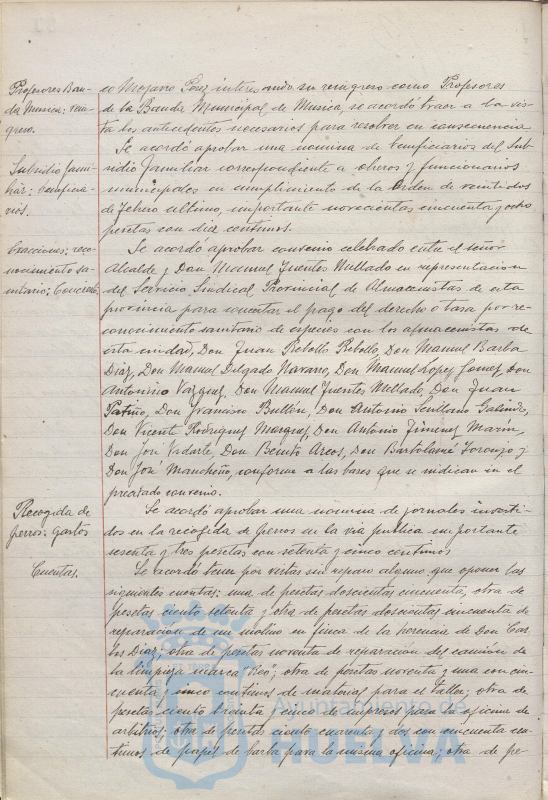 Profesores Ban-
da Musica: rein-
greso.
co Mojarro Pouz interesando su reingreso como Profesores
de la Banda Municipal de Musica, se acordó traer a la vis-
ta los antecedentes necesarios para resolver en consecuencia
Subsidio fami-
liar: beneficia-
rios.
Se acordó aprobar una nomina de beneficiarios del Sub-
sidio familiar correspondiente a obreros y funcionarios
municipales en cumplimiento de la orden de veintidos
de febrero ultimo, importante novecientas cincuenta y ocho
pesetas con diez centimos.
Exacciones: reco-
nocimiento sa-
nitario: Concierto
Se acordó aprobar convenio celebrado entre el señor
Alcalde y Don Manuel Fuentes Mellado en representacion
del Servicio Sindical Provincial de Almacenistas de esta
provincia para concertar el pago del derecho o tasa por re-
conocimiento sanitario de especies con los almacenistas de
esta ciudad, Don Juan Rebollo Rebollo, Don Manuel Barba
Diaz, Don Manuel Delgado Navarro, Don Manuel Lopez Gomez, Don
Antonino Vazquez, Don Manuel Fuentes Mellado, Don Juan
Patiño, Don Francisco Bullón, Don Antonio Galindo,
Don Vicente Rodriguez Marquez, Don Antonio Jimenez Marin,
Don José Vidarte, Don Benito Arcos, Don Bartolomé Toronjo y
Don José Mancheño, conforme a las bases que se indican en el
precitado convenio.
Recogida de
perros: gastos
Se acordó aprobar una nómina de jornales inverti-
dos en la recogida de perros en la via publica importante
sesenta y tres pesetas con setenta y cinco centimos
Cuentas.
Se acordó tener por vistas sin reparo alguno que oponer las
siguientes cuentas: una de pesetas doscientas cincuenta, otra de
pesetas ciento setenta y otra de pesetas doscientas cincuenta de
reparación de un molino en finca de la herencia de Don Car-
los Diaz; otra de pesetas noventa de reparacion del camión de
la limpieza marca "Reo"; otra de pesetas noventa y una con cin-
cuenta y cinco centimos de materias para el Taller; otra de
pesetas ciento treinta y cinco de impresos para la oficina de
arbitrios; otra de pesetas ciento cuarenta y dos con cincuenta cen-
timos de papel de barba para la misma oficina; otra de pe-
Ayuntamiento de
HUELVA